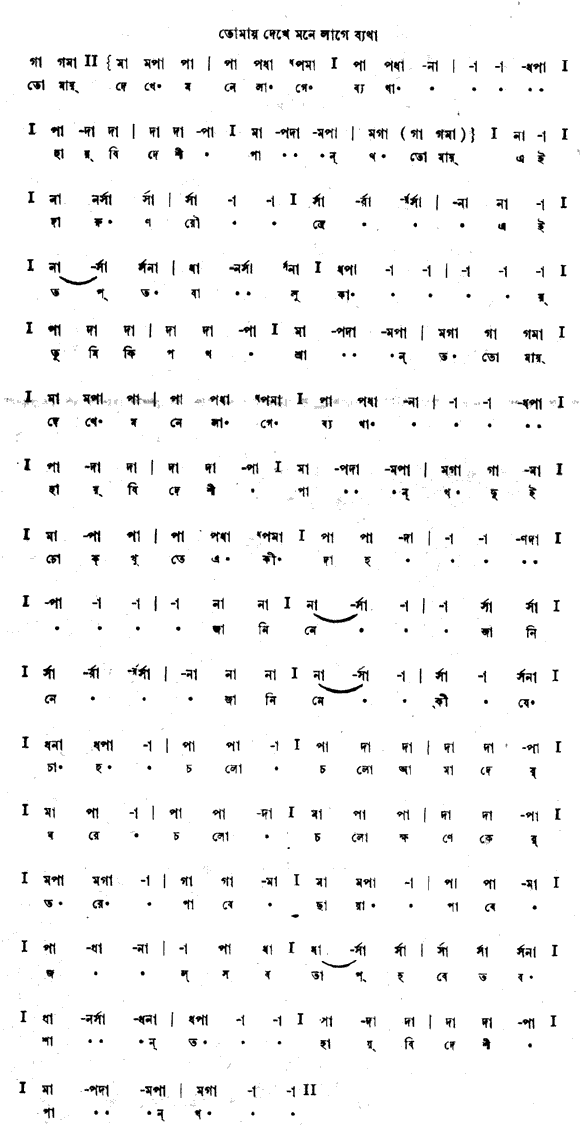 তোমায় দেখে মনে লাগে ব্যথা
গা গমা II { মা মপা পা | পা পধা ধপমা I পা পধা -না | -া -া -ধপা I
তো মায়্ দে খে॰ ম নে লা॰ গে॰ ব্য থা॰ ॰ ॰ ॰ ॰॰
I পা -দা দা | দা দা -পা I মা -পদা -মপা | মগা (গা গমা) } I না -া I
হা য়্ বি দে শী ॰ পা ॰॰ ॰ন্ থ॰ তো মায়্ এ ই
I না নর্সা র্সা | র্সা -া -া I র্সা -র্রা -র্রর্সা | -না না -া I
দা রু॰ ণ রৌ ॰ ॰ দ্রে ॰ ॰ ॰ এ ই
I না -র্সা র্সনা | ধা -নর্সা র্সনা I ধপা -া -া | -া -া -া I
ত প্ ত॰ বা ॰॰ লু কা॰ ॰ ॰ ॰ ॰ য়্
I পা দা দা | দা দা -পা I মা -পদা -মপা | মগা গা গমা I
তু মি কি প থ ॰ ভ্রা ॰॰ ॰ন্ ত॰ তো মায়্
I মা মপা পা | পা পধা ধপমা I পা পধা -না | -া -া -ধপা I
দে খে॰ ম নে লা॰ গে॰ ব্য থা॰ ॰ ॰ ॰ ॰॰
I পা -দা দা | দা দা -পা I মা -পদা -মপা | মগা গা -মা I
হা য়্ বি দে শী ॰ পা ॰॰ ॰ন্ থ॰ দু ই
I মা -পা পা | পা পধা ধপমা I পা পা -দা | -া -া -ণদা I
চো ক্ খু তে এ॰ কী॰ দা হ ॰ ॰ ॰ ॰॰
I -পা -া -া | -া না না I না -র্সা -া | -া র্সা র্সা I
॰ ॰ ॰ ॰ জা নি নে ॰ ॰ ॰ জা নি
I র্সা -র্রা -র্রর্সা | -না না না I না -র্সা -া | র্সা -া র্সনা I
নে ॰ ॰ ॰ জা নি নে ॰ ॰ কী ॰ যে॰
I ধনা ধপা -া | পা পা -া I পা দা দা | দা দা -পা I
চা॰ হ॰ ॰ চ লো ॰ চ লো আ মা দে র্
I মা পা -া | পা পা -দা I মা পা পা | দা দা -পা I
ঘ রে ॰ চ লো ॰ চ লো ক্ষ ণে কে র্
I মপা মগা -া | গা গা -মা I মা মপা -া | পা পা -মা I
ত॰ রে॰ ॰ পা বে ॰ ছা য়া॰ ॰ পা বে ॰
I পা -ধা -না | -া পা ধা I ধা -র্সা র্সা | র্সা র্সা র্সনা I
জ ॰ ॰ ল্ স ব তা প্ হ বে ত ব॰
I ধা -নর্সা -ধনা | ধপা -া -া I পা -দা দা | দা দা -পা I
শা ॰॰ ॰ন্ ত॰ ॰ ॰ হা য়্ বি দে শী ॰
I মা -পদা -মপা | মগা -া -া II
পা ॰॰ ॰ন্ থ॰ ॰ ॰